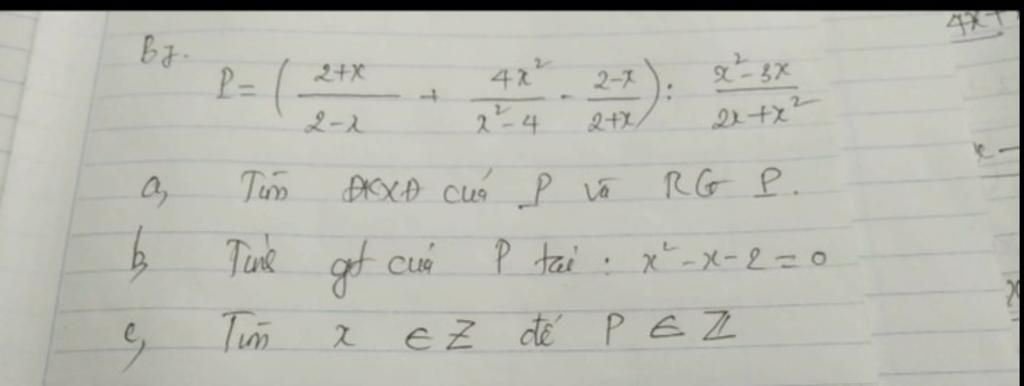 B7.
P = ( \frac{2+x}{2-x} + \frac{4x^2}{x^2-4} - \frac{2-x}{2+x} ) : \frac{x^2-3x}{2x+x^2}
a, Tìm ĐKXĐ của P và RG P.
b, Tính gt của P tại : x^2 - x - 2 = 0
c, Tìm x ∈ Z để P ∈ Z
4x+